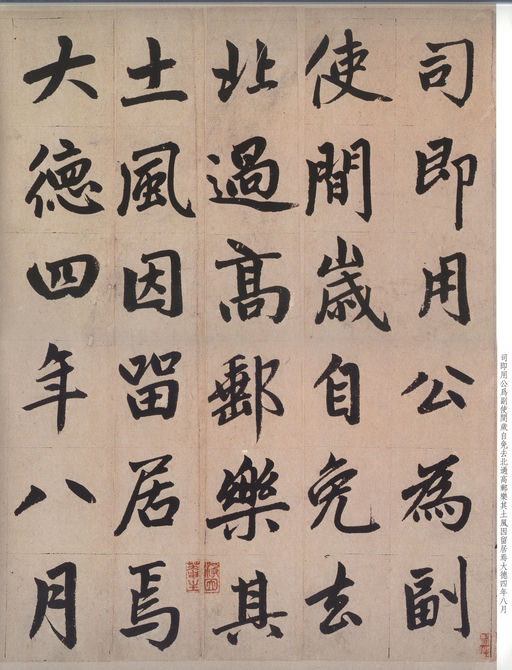 司即用公為副
使間歲自免去
北過高郵樂其
土風因留居焉
大德四年八月
司即用公為副使間歲自免去北過高郵樂其土風因留居焉大德四年八月